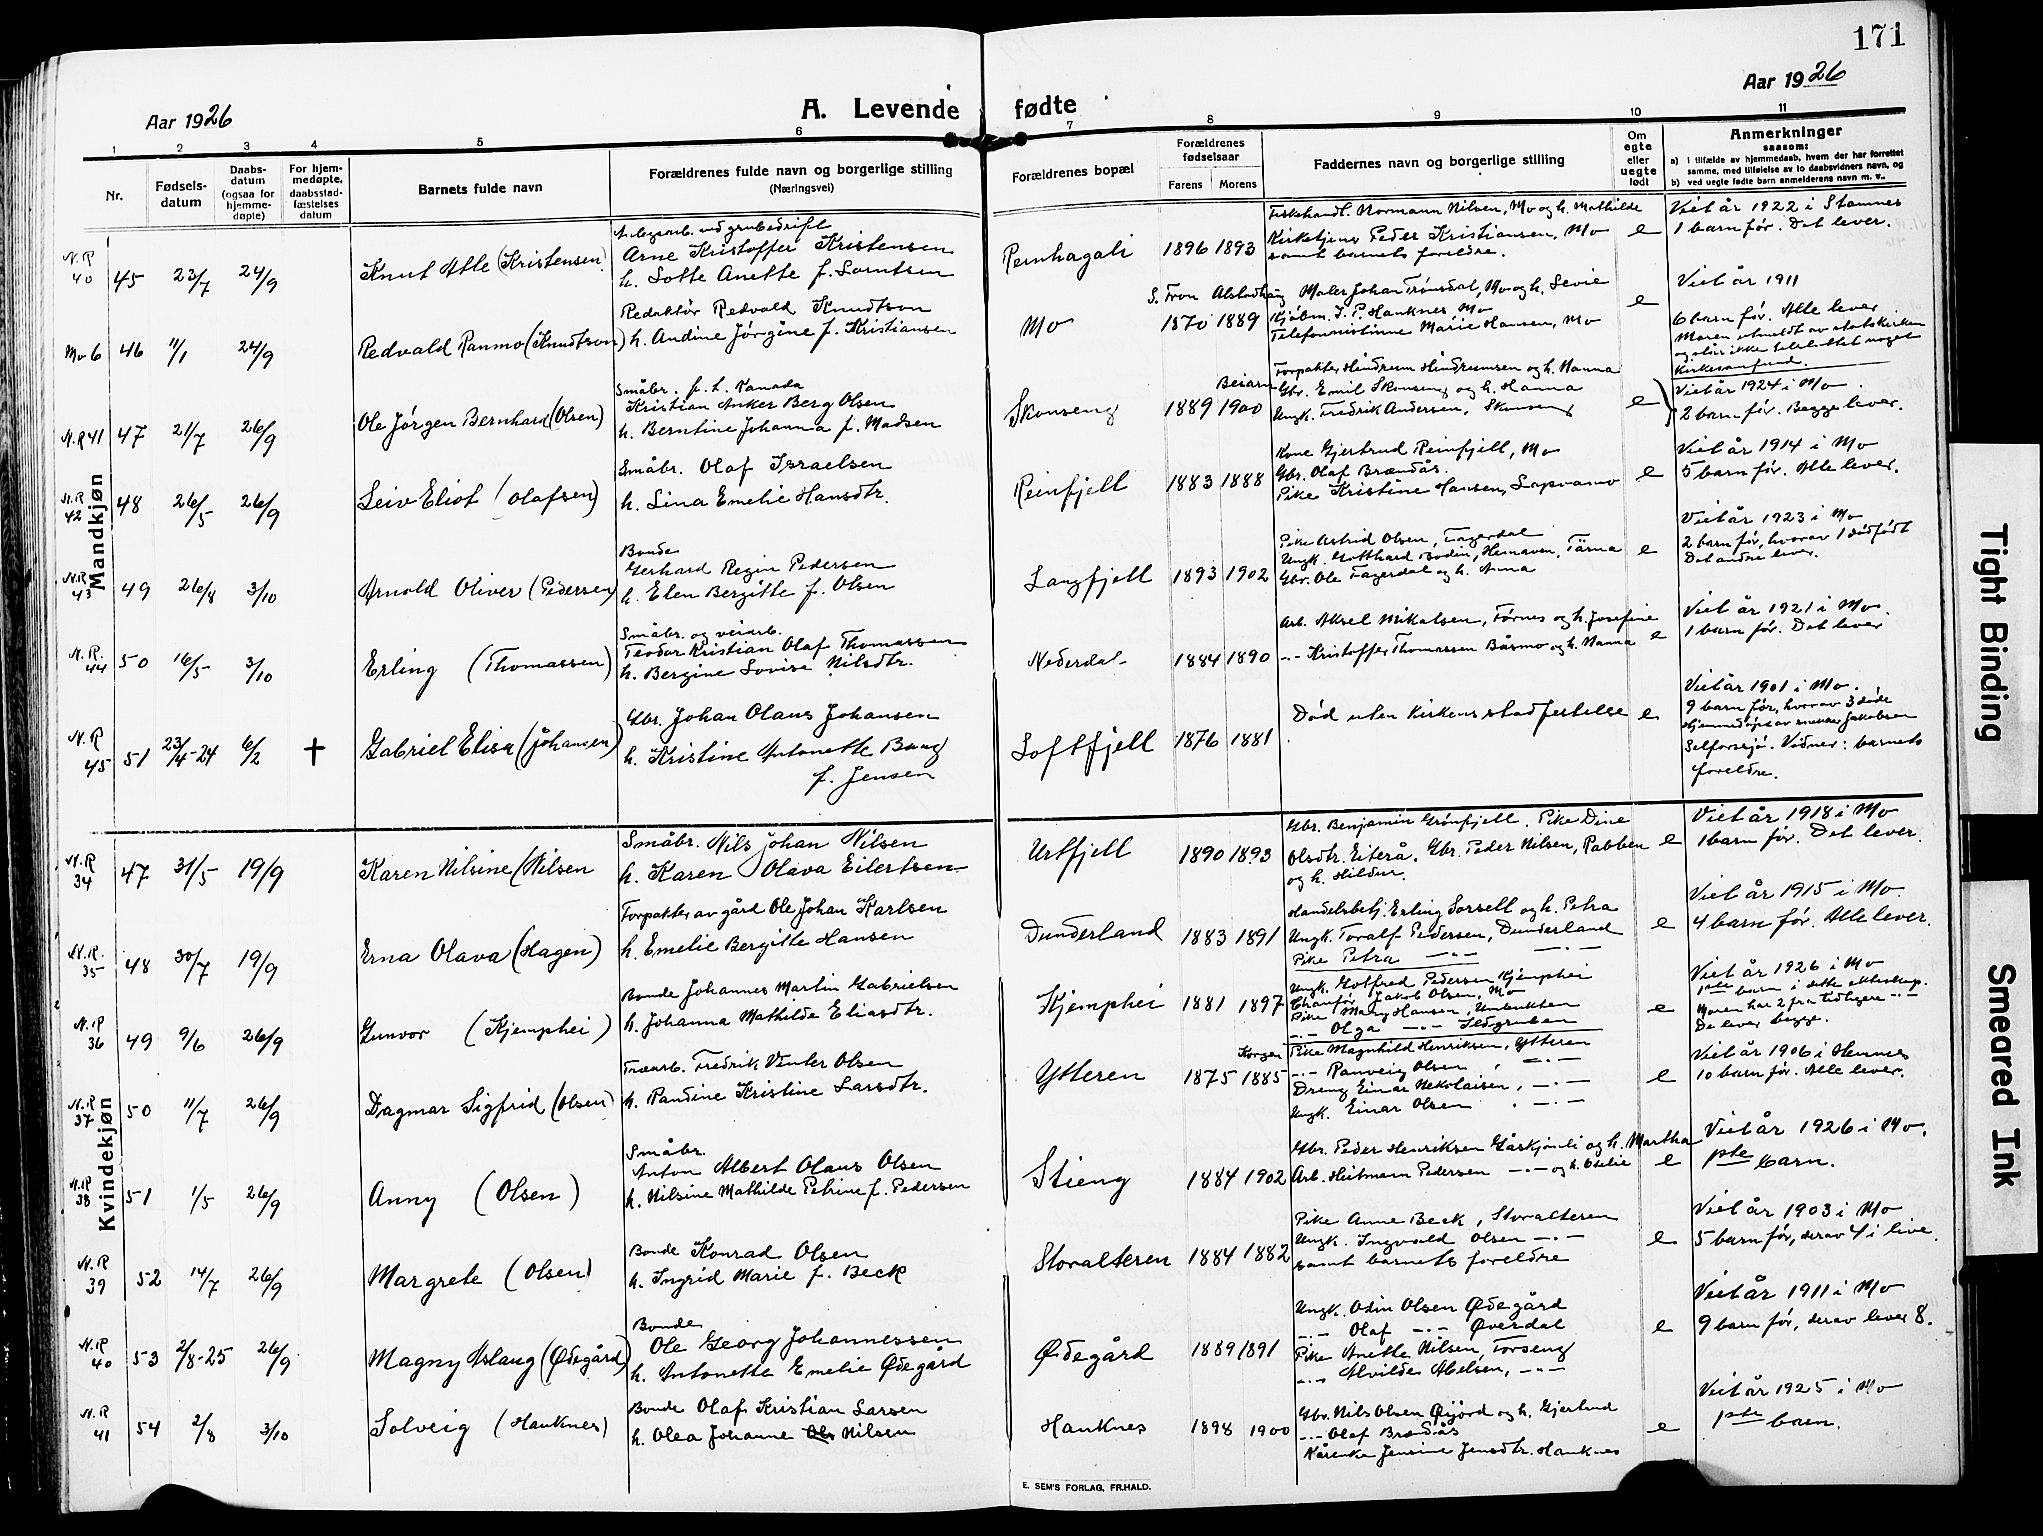 171
Aar 1926
A. Levende fødte
Aar 1926
1 2 3 4 5 6 7 8 9 10 11
Nr.
Fødsels-
datum
Daabs-
datum
(ogsaa for
hjemme-
døpte)
For hjem-
medøpte,
daabsstad-
fæstelses
datum
Barnets fulde navn
Forældrenes fulde navn og borgerlige stilling
(Næringsvei)
Forældrenes bopæl
Forældrenes
fødselsaar
Farens Morens
Faddernes navn og borgerlige stilling
Om
egte
eller
uegte
født
Anmerkninger
saasom:
a) i tilfælde av hjemmedaab, hvem der har forrettet
samme, med tilføielse av to daabsvidners navn, og
b) ved uegte fødte barn anmelderens navn m. v.
Mandkjøn
N.R 40 45 23/7 24/9 Knut Atle (Kristensen)
Arne Kristoffer Kristensen
h. Lotte Anette f. Lorntsen
1896 1893
Fiskehandl. Normann Nilsen, Mo og h. Mathilde
Kirketjener Peder Kristiansen, Mo
samt barnets foreldre.
e
Viet år 1922 i Stamnes
1 barn før. Det lever.
Mo 6 46 11/1 24/9 Redvald Ranmo (Knudtson)
Redaktør Redvald Knudtson
h. Andine Jørgine f. Kristiansen
Mo
S. Fron Alstadhaug
1870 1889
Maler Johan Trønsdal, Mo og h. Sevie
Kjøbm. I. P. Hauknes, Mo
Telefonistinne Marie Hansen, Mo
e
Viet år 1911
6 barn før. Alle lever
Moren utmeldt av statskirken
og står ikke tilsluttet noget
kirkesamfund.
N.R 41 47 21/7 26/9 Ole Jørgen Bernhard (Olsen)
Småbr. f. t. Kanada
Kristian Anker Berg Olsen
h. Berntine Johanna f. Madsen
Skonseng
Beiarn
1889 1900
Forpakter Hindrum Hindrumsen og h. Nanna
Gbr. Emil Skonseng og h. Hanna
Ungk. Fredrik Andersen, Skonseng
e
Viet år 1924 i Mo
2 barn før. Begge lever.
N.R 42 48 26/5 26/9 Leiv Eliot (Olafsen)
Småbr. Olaf Israelsen
h. Lina Emelie Hansdtr.
Reinfjell
1883 1888
Kone Gjertrud Reinfjell, Mo
Gbr. Olaf Brændås.
Pike Kristine Hansen,
e
Viet år 1914 i Mo
5 barn før. Alle lever.
N.R 43 49 26/8 3/10 Arnold Oliver (Pedersen)
Bonde
Gerhard Regin Pedersen
h. Elen Bergitte f. Olsen
Langfjell
1893 1902
Pike Astrid Olsen, Fagerdal
Ungk. Gotthard Bodin, Hemaven, Tärna
Gbr. Ole Fagerdal og h. Anna
e
Viet år 1923 i Mo
2 barn før, hvorav 1 dødfødt
Det andre lever.
N.R. 44 50 16/5 3/10 Erling (Thomassen)
Småbr. og veiarb.
Teodor Kristian Olaf Thomassen
h. Bergine Lovise Nilsdtr.
Nederdal
1884 1890
Arb. Aksel Mikalsen, Førnes og h. Josefine
-"- Kristoffer Thomassen Båsmo og h. Nanna
e
Viet år 1921 i Mo.
1 barn før. Det lever
N.R 45 51 23/4-24 6/2 † Gabriel Elisa (Johansen)
Gbr. Johan Olaus Johansen
h. Kristine Antonette Baag
f. Jensen
Loftfjell
1876 1881
Død uten kirkens stadfestelse
e
Viet år 1901 i Mo.
9 barn før, hvorav 3 døde
Hjemmedøpt av snekker Jakobsen
Selforssjø. Vidner: barnets
foreldre.
Kvindekjøn
N.R 34 47 31/5 19/9 Karen Nilsine (Nilsen
Småbr. Nils Johan Nilsen
h. Karen Olava Eilertsen
Urtfjell
1890 1893
Gbr. Benjamin Grønfjell. Pike Dine
Olsdtr. Eiterå. Gbr. Peder Nilsen, Rabben
og h. Hildur.
e
Viet år 1918 i Mo
1 barn før. Det lever.
N.R. 35 48 30/7 19/9 Erna Olava (Hagen)
Forpakter av gård Ole Johan Karlsen
h. Emelie Bergitte Hansen
Dunderland
1883 1891
Handelsbetj. Erling Sorsell og h. Petra
Ungk. Toralf Pedersen, Dunderland
Pike Petra -"- -"-
e
Viet år 1915 i Mo
4 barn før. Alle lever.
N.R 36 49 9/6 26/9 Gunvor (Kjemphei)
Bonde Johannes Martin Gabrielsen
h. Johanna Mathilde Eliasdtr.
Kjemphei
1881 1897
Ungk. Gotfred Pedersen Kjemphei
Chauffør Jakob Olsen, Mo
Pike Mary Hansen, Umbukten
-"- Olga -"- Ildgruben
e
Viet år 1926 i Mo
1ste barn i dette ekteskap.
Moren har 2 fra tidligere -"-
De lever begge.
N.R 37 50 11/7 26/9 Dagmar Sigfrid (Olsen)
Fredrik Venter Olsen
h. Pandine Kristine Larsdtr.
Ytteren
Korgen
1875 1885
Pike Magnhild Henriksen, Ytteren
-"- Ranveig Olsen, -"-
Dreng Einar Nikolaisen, -"-
Ungk. Einar Olsen, -"-
e
Viet år 1906 i Hemnes
10 barn før. Alle lever.
N.R 38 51 1/5 26/9 Anny (Olsen)
Småbr.
Anton Albert Olaus Olsen
h. Nilsine Mathilde Petrine f. Pedersen
Stieng
1884 1902
Gbr. Peder Henriksen Gåskjønli og h. Martha
Arb. Heitmann Pedersen -"- og h. Otelie
e
Viet år 1926 i Mo.
1ste barn.
N.R 39 52 14/7 26/9 Margrete (Olsen)
Bonde Konrad Olsen
h. Ingrid Marie f. Beck
Storalteren
1884 1882
Pike Anne Beck, Storalteren
Ungk. Ingvald Olsen -"-
samt barnets foreldre
e
Viet år 1903 i Mo
5 barn før, derav 4 i live.
N.R 40 53 2/8-25 26/9 Magny Aslaug (Ødegård)
Bonde
Ole Georg Johannessen
h. Antonette Emelie Ødegård
Ødegård
1889 1891
Ungk. Odin Olsen Ødegård
-"- Olaf -"- Øverdal
Pike Anette Nilsen, Forseng
-"- Alvilde Abelsen, -"-
e
Viet år 1911 i Mo
9 barn før, derav lever 8.
N.R 41 54 2/8 3/10 Solveig (Hauknes)
Bonde Olaf Kristian Larsen
h. Olea Johanne Nilsen
Hauknes
1898 1900
Gbr. Nils Olsen Øijord og h. Gjerlaud
-"- Olaf Brændås
Jensine Jensdtr. Hauknes
e
Viet år 1925 i Mo
1ste barn.
E. SEM'S FORLAG, FR.HALD.
Tight Binding
Smeared Ink